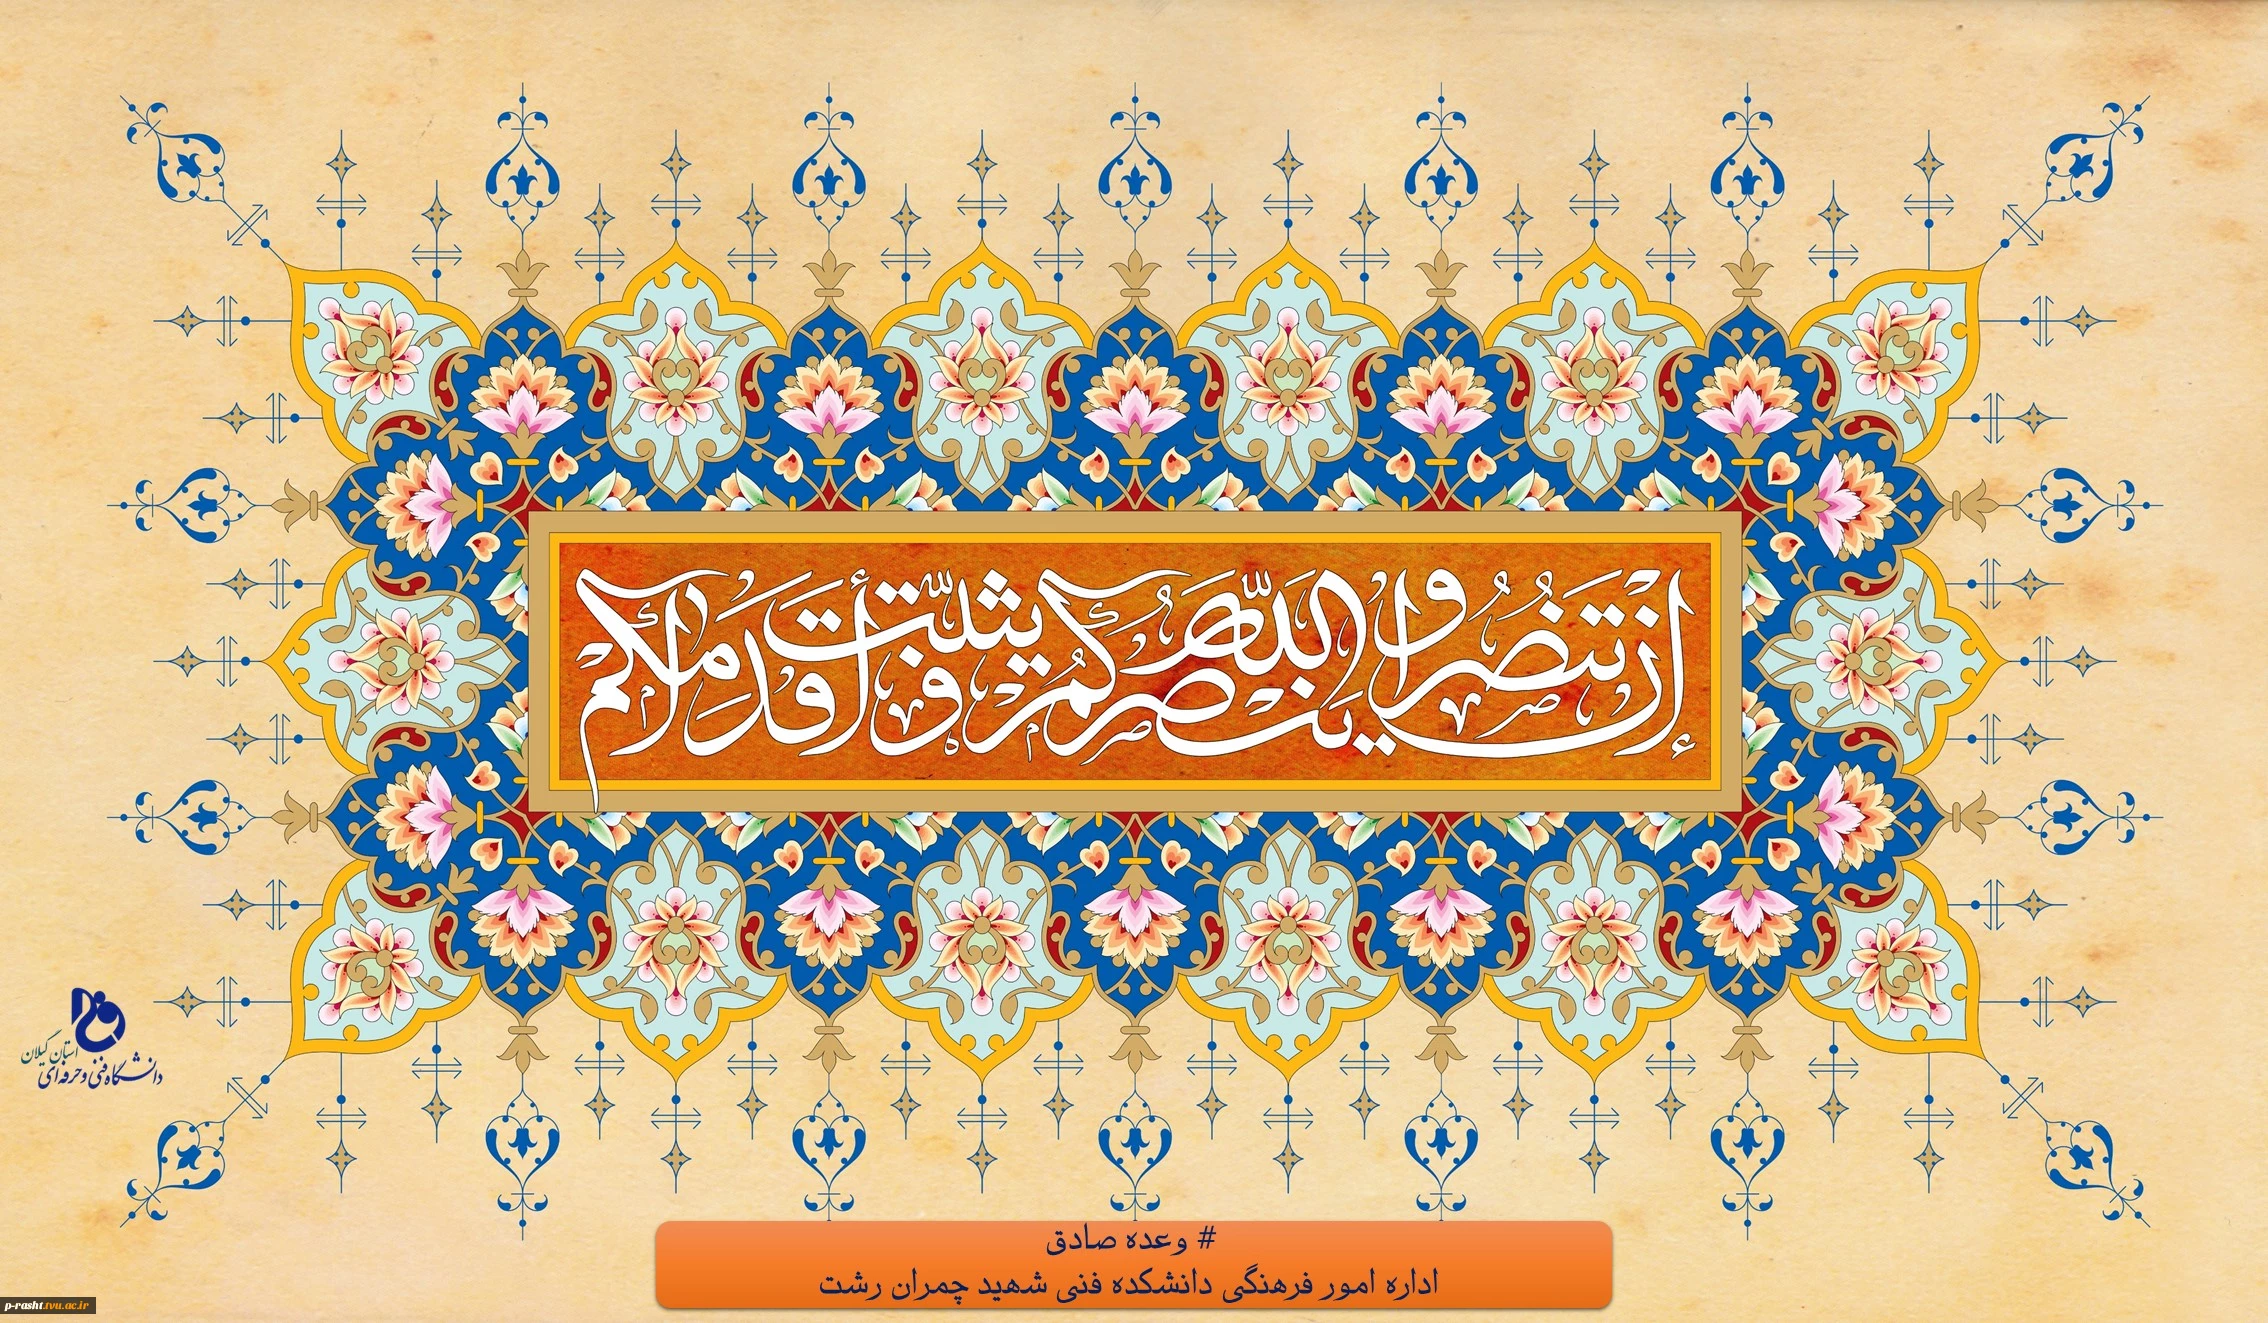 إِنْ تَنْصُرُوا اللَّهَ يَنْصُرْكُمْ وَ يُثَبِّتْ أَقْدَامَكُمْ
استان گیلان
دانشگاه فنی و حرفه‌ای
# وعده صادق
اداره امور فرهنگی دانشکده فنی شهید چمران رشت
p-rasht.tvu.ac.ir